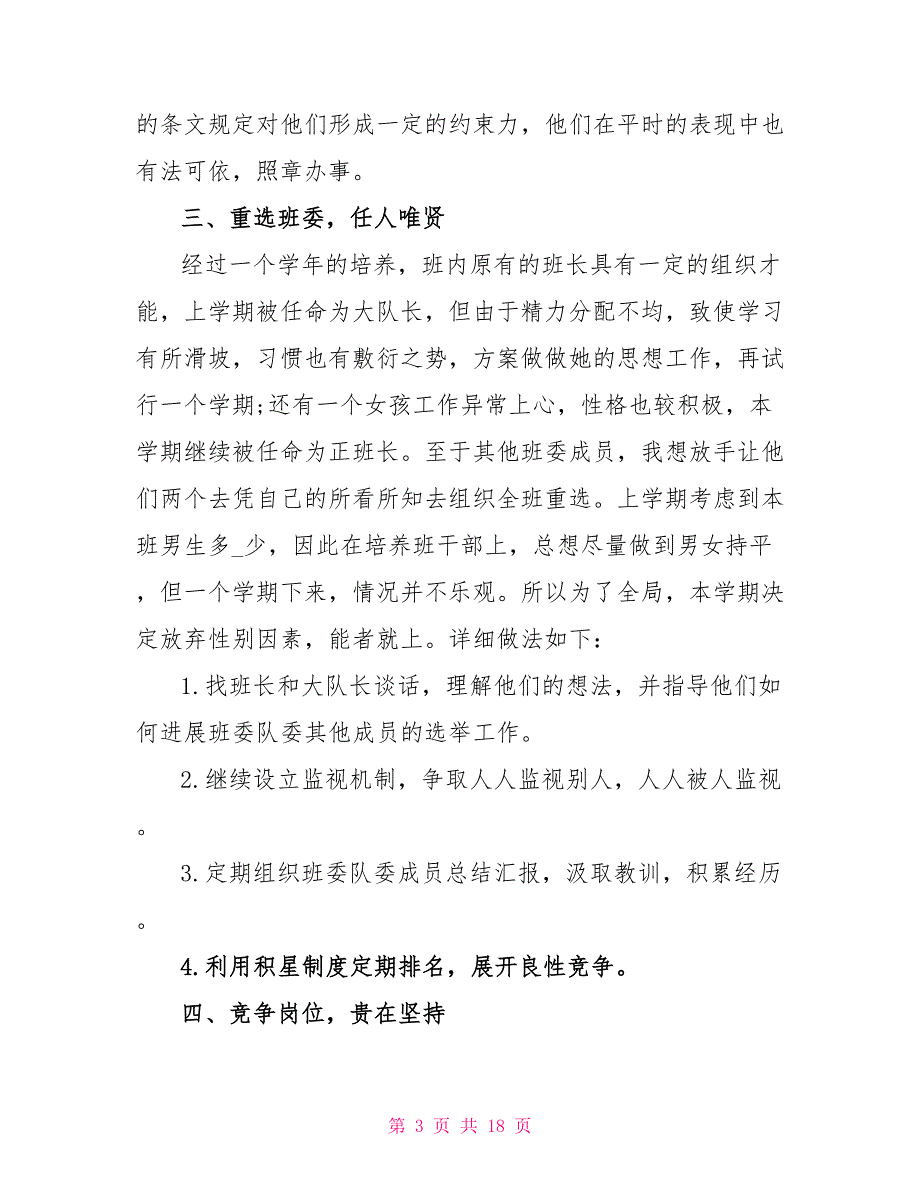 的条文规定对他们形成一定的约束力，他们在平时的表现中也
有法可依，照章办事。
三、重选班委，任人唯贤
经过一个学年的培养，班内原有的班长具有一定的组织才
能，上学期被任命为大队长，但由于精力分配不均，致使学习
有所滑坡，习惯也有敷衍之势，方案做做她的思想工作，再试
行一个学期;还有一个女孩工作异常上心，性格也较积极，本
学期继续被任命为正班长。至于其他班委成员，我想放手让他
们两个去凭自己的所看所知去组织全班重选。上学期考虑到本
班男生多_少，因此在培养班干部上，总想尽量做到男女持平
，但一个学期下来，情况并不乐观。所以为了全局，本学期决
定放弃性别因素，能者就上。详细做法如下：
1.找班长和大队长谈话，理解他们的想法，并指导他们如
何进展班委队委其他成员的选举工作。
2.继续设立监视机制，争取人人监视别人，人人被人监视
。
3.定期组织班委队委成员总结汇报，汲取教训，积累经历
。
4.利用积星制度定期排名，展开良性竞争。
四、竞争岗位，贵在坚持
第 3 页 共 18 页